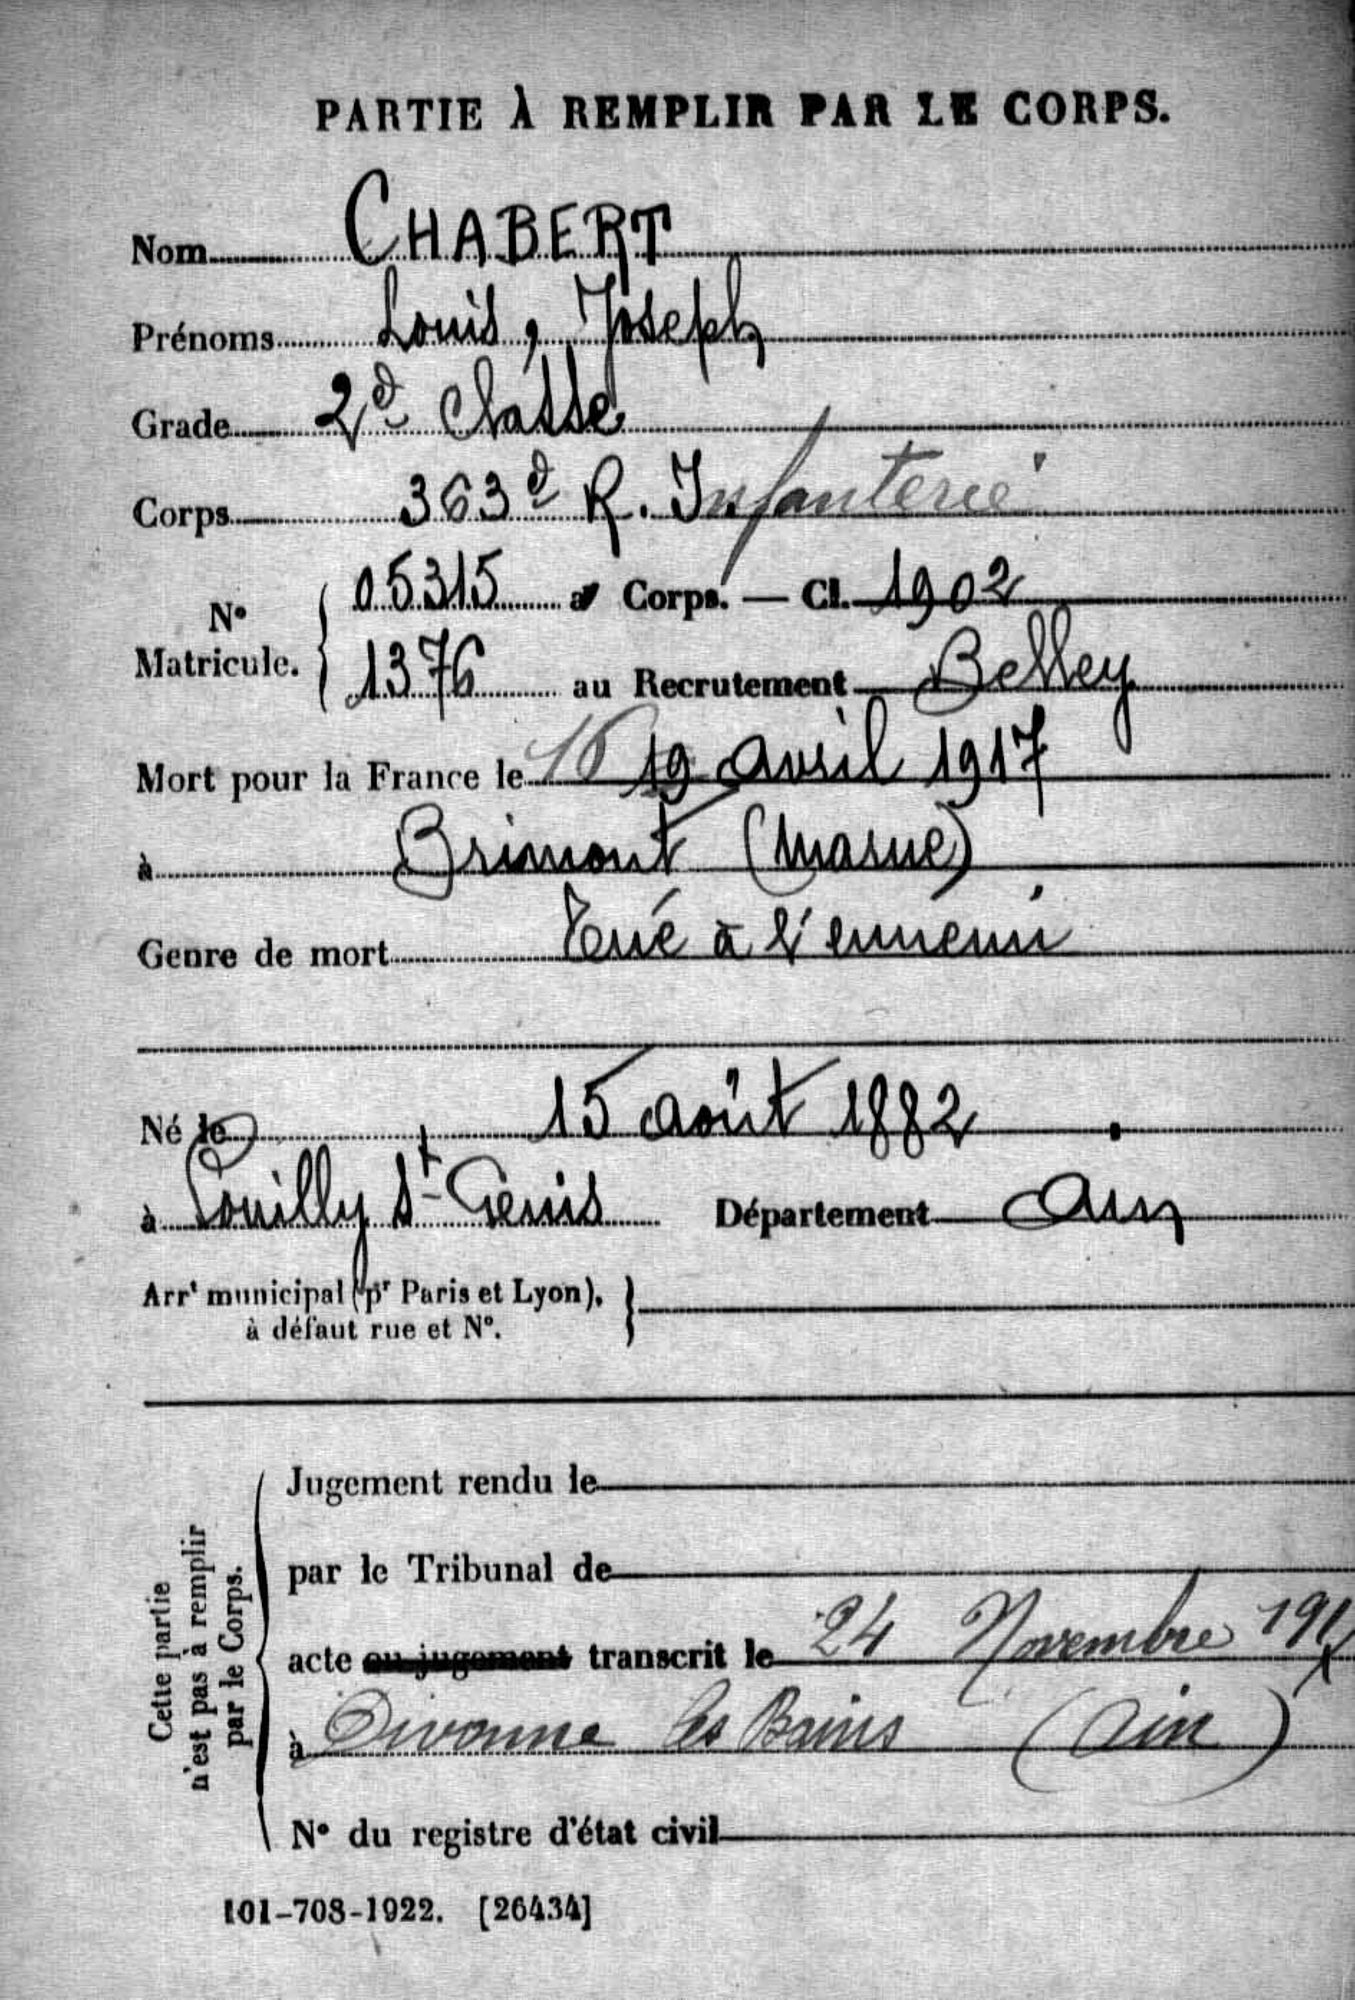 PARTIE À REMPLIR PAR LE CORPS.
Nom CHABERT
Prénoms Louis, Joseph
Grade 2e classe
Corps 363e R. Infanterie
No Matricule. 05315 au Corps. — Cl. 1902
1376 au Recrutement Belley
Mort pour la France le 16 19 avril 1917
à Brimont (Marne)
Genre de mort Tué à l'ennemi
Né le 15 août 1882
à Pouilly St-Genis Département Ain
Arrt municipal (pr Paris et Lyon),
à défaut rue et No.
Cette partie
n'est pas à remplir
par le Corps.
Jugement rendu le
par le Tribunal de
acte ou jugement transcrit le 24 Novembre 1917
à Divonne les Bains (Ain)
No du registre d'état civil
101-708-1922. [26434]